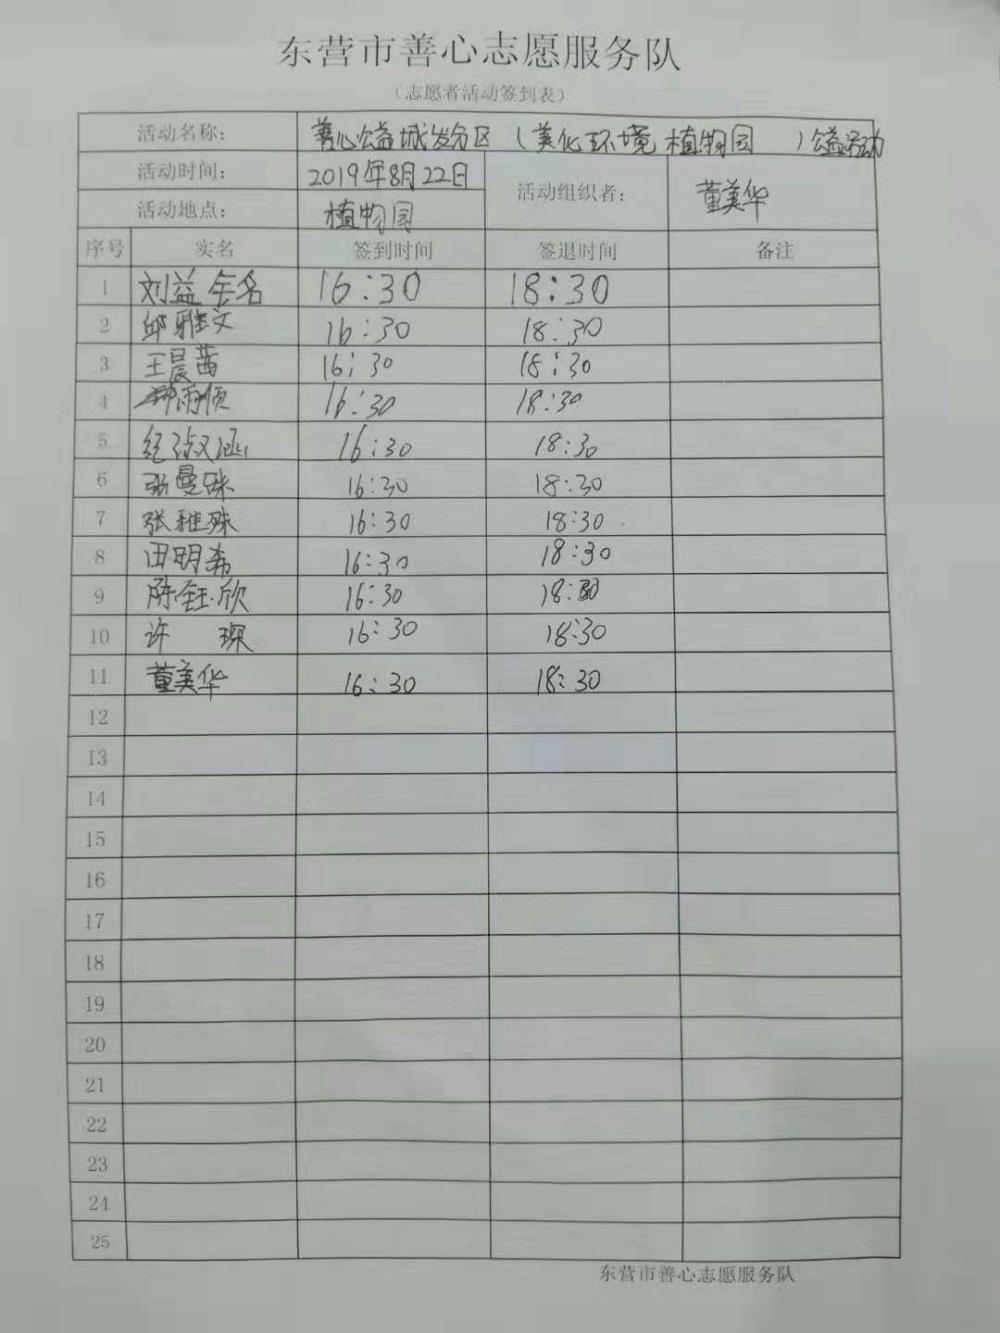 东营市善心志愿服务队
（志愿者活动签到表）
活动名称： 善心公益城发分区（美化环境 植物园 ）公益活动
活动时间： 2019年8月22日 活动组织者： 董美华
活动地点： 植物园
序号 实名 签到时间 签退时间 备注
1 刘益铭 16:30 18:30
2 邱雅文 16:30 18:30
3 王晨茜 16:30 18:30
4 雨顺 16:30 18:30
5 纪淑涵 16:30 18:30
6 张曼姝 16:30 18:30
7 张雅殊 16:30 18:30
8 田明希 16:30 18:30
9 陈钰欣 16:30 18:30
10 许 琛 16:30 18:30
11 董美华 16:30 18:30
12
13
14
15
16
17
18
19
20
21
22
23
24
25
东营市善心志愿服务队